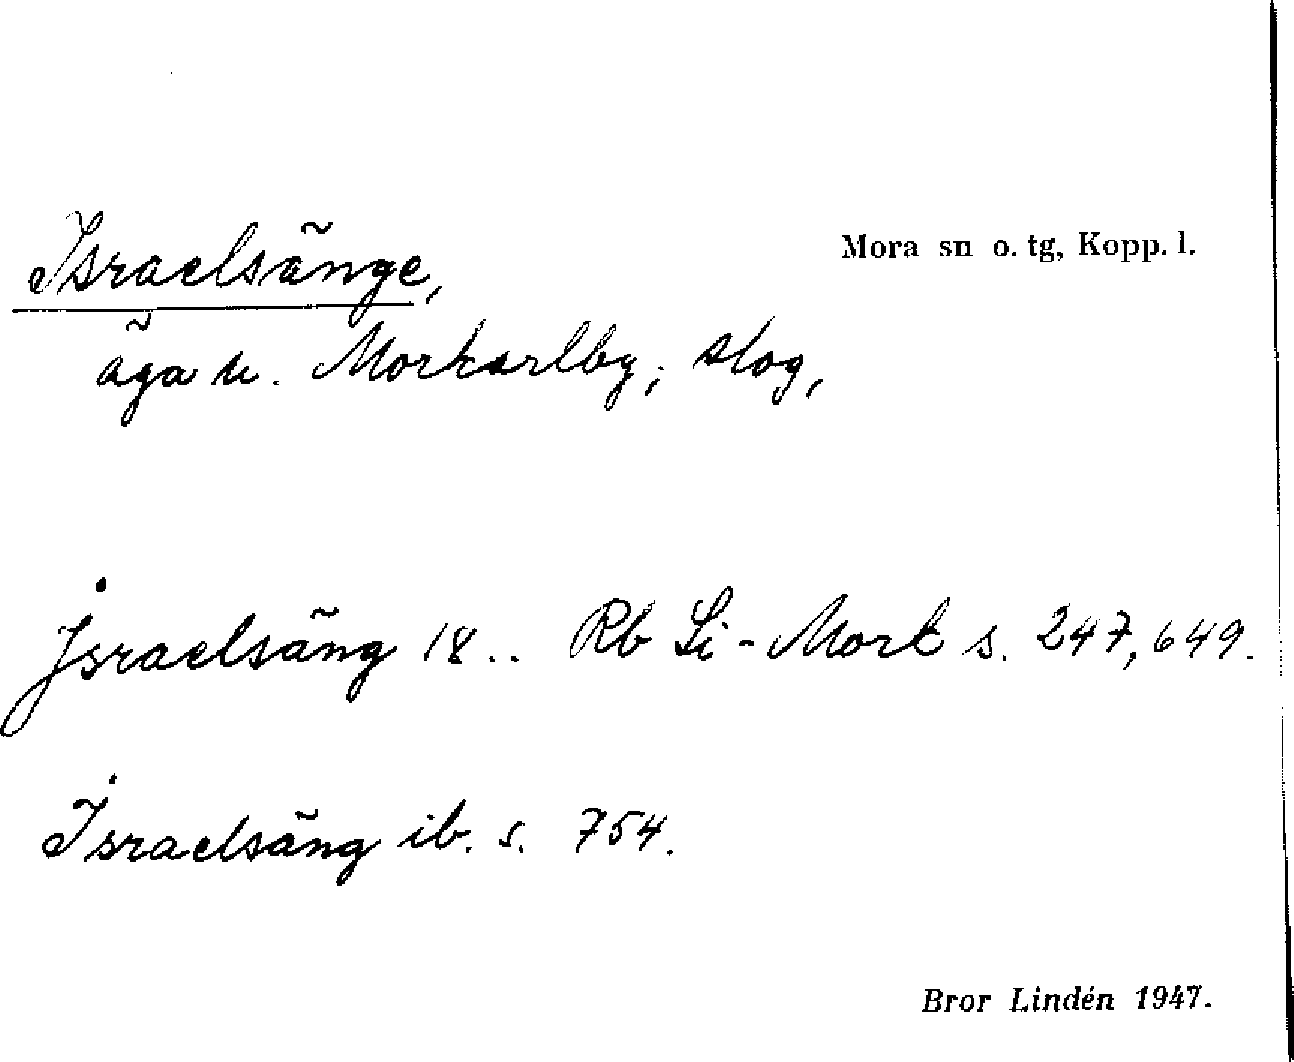 Israelsänge,
Mora sn o. tg, Kopp. l.
äga u. Morkarlby; slog,
Jsraelsäng 18.. Rb Li-Mork s. 247, 649.
Israelsäng ib. s. 754.
Bror Lindén 1947.